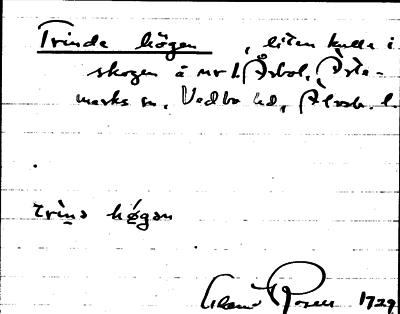 Trinde högen, liten kulle i
skogen å nr 1 Årbol, Ärte-
marks sn, Vedbo hd, Älvsb. l.
trìnə høgən
Rosell 1929